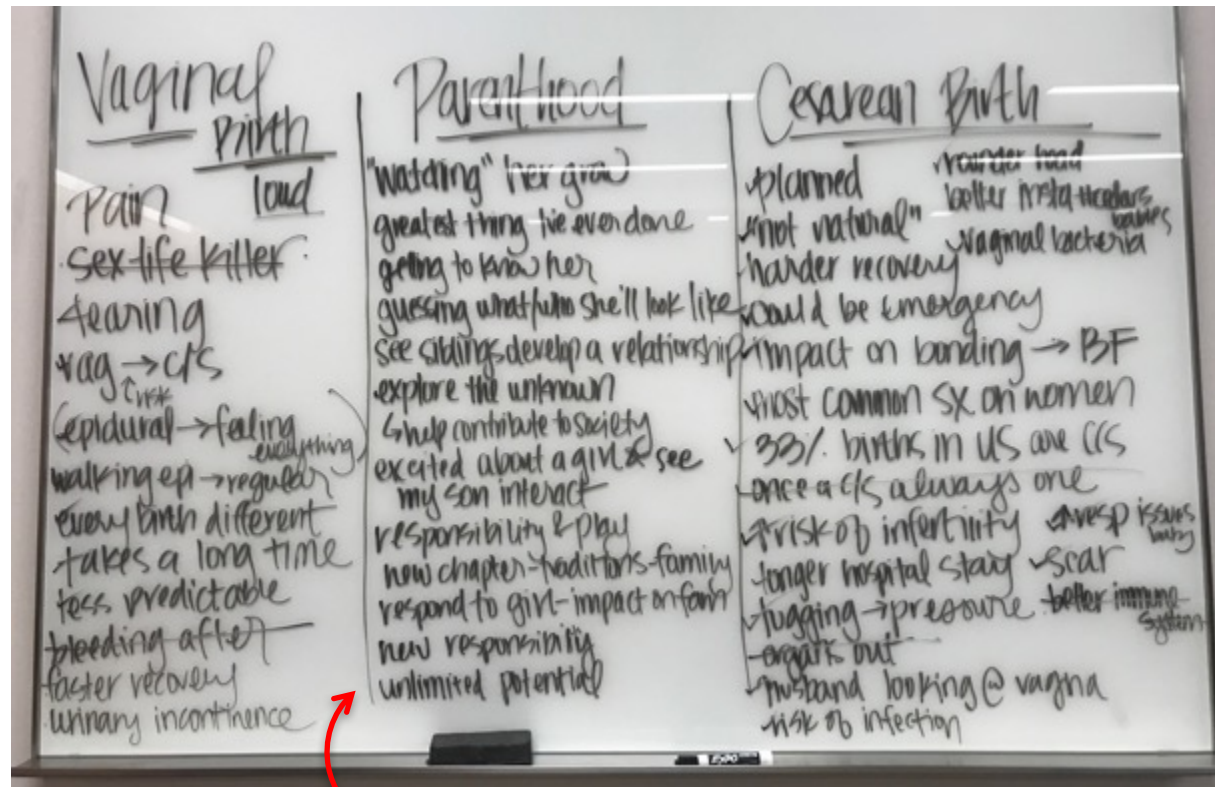 Vaginal
Birth
loud
Pain
sex-life killer
tearing
vag → c/s
↑ risk
(epidural → feeling
everything)
walking epi → regular
every birth different
takes a long time
less predictable
bleeding after
faster recovery
urinary incontinence
Parenthood
"watching" her grow
greatest thing I've ever done
getting to know her
guessing what/who she'll look like
see siblings develop a relationship
explore the unknown
↳ help contribute to society
excited about a girl & see
my son interact
responsibility & play
new chapter-traditions-family
respond to girl-impact on fam
new responsibility
unlimited potential
Cesarean Birth
planned
"not natural"
harder recovery
could be emergency
impact on bonding → BF
most common sx on women
33% births in US are C/S
once a c/s always one
↑ risk of infertility
longer hospital stay
tugging → pressure
organs out
husband looking @ vagina
risk of infection
rounder head
better insta
babies
vaginal bacteria
↑ resp issues
baby
scar
better immune
system
EXPO